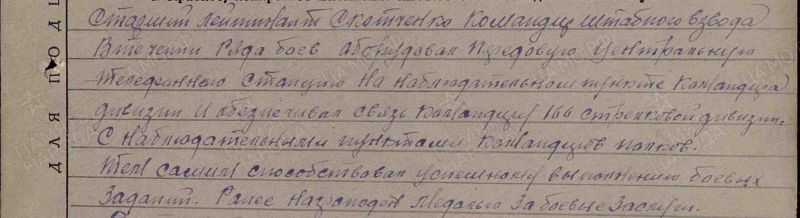 Старший лейтинант Скотченко Командир штабного взвода
В течении Ряда боев оборудовал Передовую центральную
телефонною станцию на наблюдательном пункте Командира
дивизии и обезпечивал связь Командира 166 стрелковой дивизии.
С наблюдательными пунктами Командиров полков.
Тем самым способствовал успешному выполнению боевых
Заданий. Ранее Награжден Медалью За боевые Заслуги.
ДЛЯ ПОД